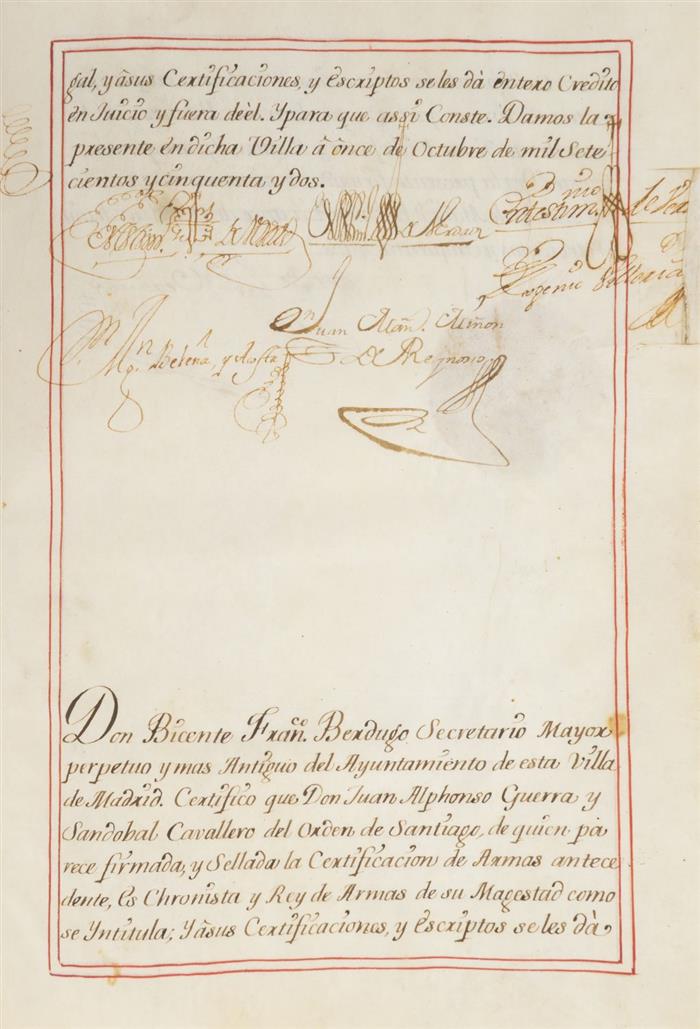 gal, y àsus Certificaciones, y Escriptos se les dà entero Credito
en Juicio y fuera deèl. Y para que assi Conste. Damos la
presente èn dicha Villa à ònce de Octubre de mil Sete
cientos y cinquenta y dos.
Eugenio
Juan
y Acosta
De Reynoso
Don Bicente Fran.co Berdugo Secretario Mayor
perpetuo y mas Antiguo del Ayuntamiento de esta Villa
de Madrid. Certifico que Don Juan Alphonso Guerra y
Sandobal Cavallero del Orden de Santiago, de quien pa
rece firmada, y Sellada la Certificacion de Armas antece
dente, Es Chronista y Rey de Armas de su Magestad como
se Yntitula; Y àsus Certificaciones, y Escriptos se les dà